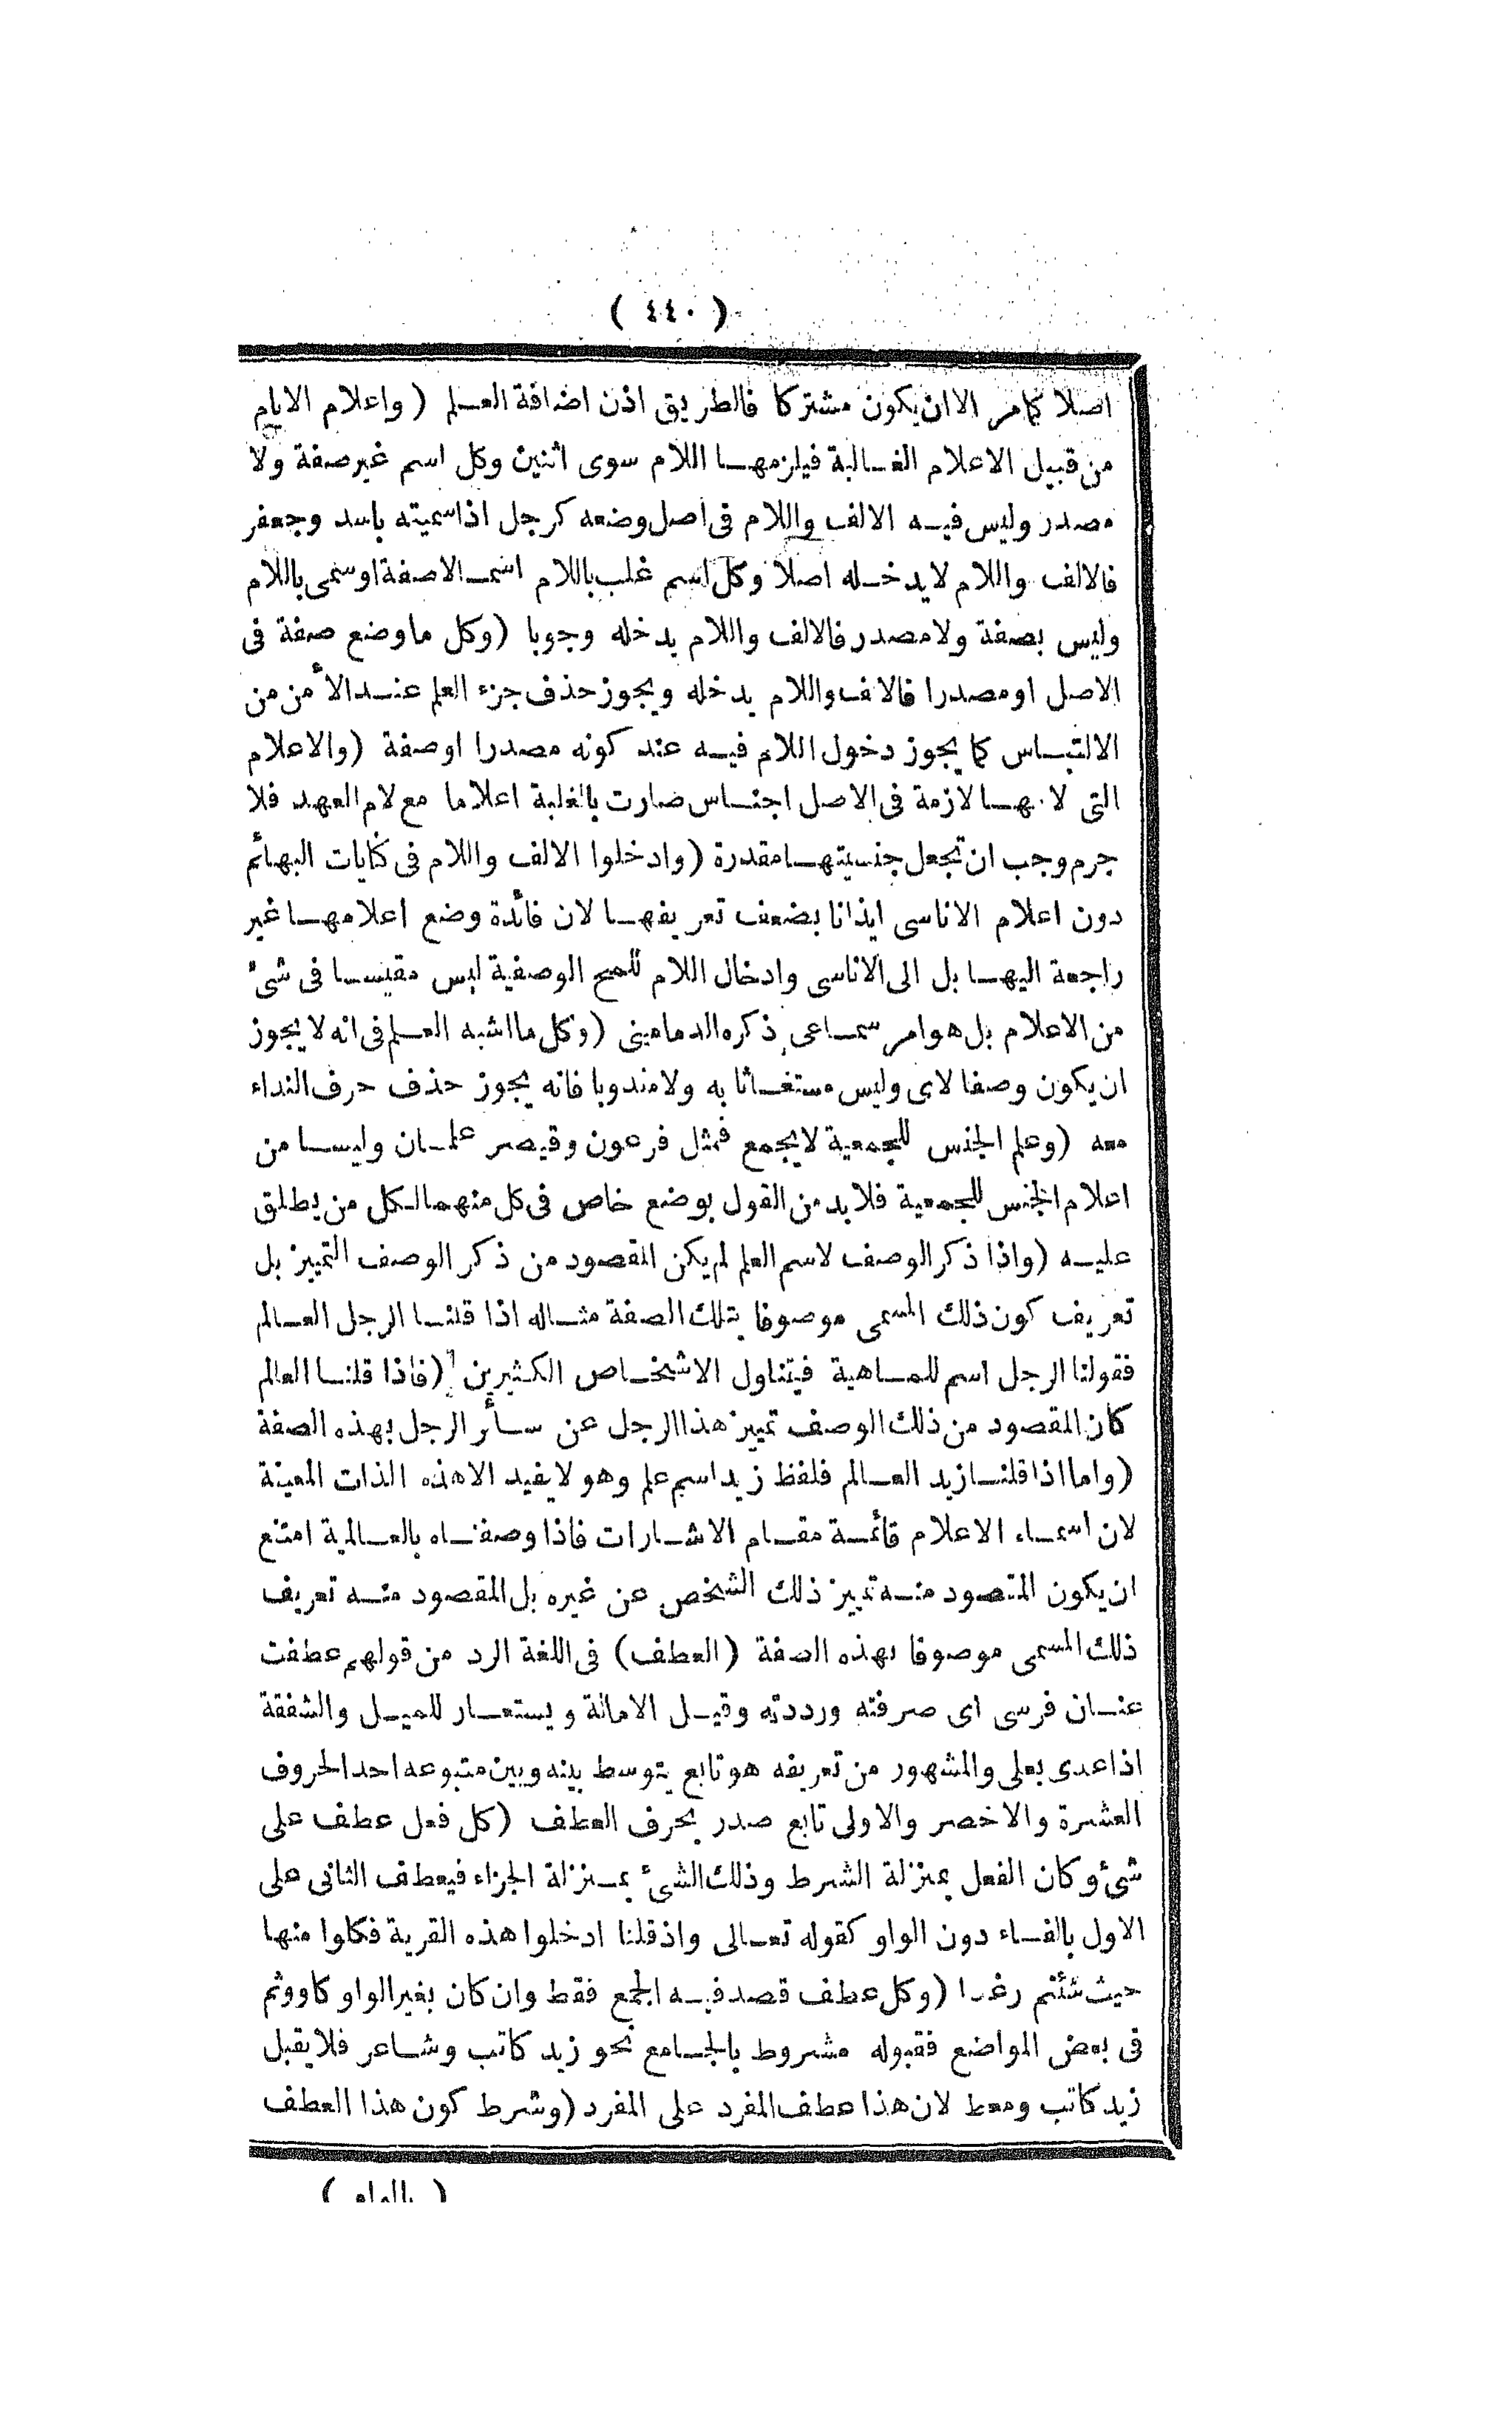 ( ٤٤٠ )
اصلا كمامر الاان يكون مشتركا فالطريق اذن اضافة العلم ( واعلام الايام
من قبيل الاعلام الغالبة فيلزمها اللام سوى اثنين وكل اسم غير صفة ولا
مصدر وليس فيه الالف واللام فى اصل وضعه كرجل اذاسميته باسد وجعفر
فالالف واللام لايدخله اصلا وكل اسم غلب باللام اسما لاصفة اوسمى باللام
وليس بصفة ولامصدر فالالف واللام يدخله وجوبا (وكل ماوضع صفة فى
الاصل اومصدرا فالالف واللام يدخله ويجوز حذف جزء العلم عند الأمن من
الالتباس كما يجوز دخول اللام فيه عند كونه مصدرا اوصفة (والاعلام
التى لامها لازمة فى الاصل اجناس صارت بالغلبة اعلاما مع لام العهد فلا
جرم وجب ان تجعل جنسيتها مقدرة (وادخلوا الالف واللام فى كنايات البهائم
دون اعلام الاناسى ايذانا بضعف تعريفها لان فائدة وضع اعلامها غير
راجعة اليها بل الى الاناسى وادخال اللام للمح الوصفية ليس مقيسا فى شىء
من الاعلام بل هوامر سماعى ذكره الدمامينى (وكل مااشبه العلم فى انه لا يجوز
ان يكون وصفا لاى وليس مستغاثا به ولامندوبا فانه يجوز حذف حرف النداء
معه (وعلم الجنس للجمعية لايجمع فمثل فرعون وقيصر علمان وليسا من
اعلام الجنس للجمعية فلابد من القول بوضع خاص فى كل منهما لكل من يطلق
عليه (واذا ذكر الوصف لاسم العلم لم يكن المقصود من ذكر الوصف التمييز بل
تعريف كون ذلك المسمى موصوفا بتلك الصفة مثاله اذا قلنا الرجل العالم
فقولنا الرجل اسم للماهية فيتناول الاشخاص الكثيرين (فاذا قلنا العالم
كان المقصود من ذلك الوصف تمييز هذا الرجل عن سائر الرجل بهذه الصفة
(واما اذا قلنا زيد العالم فلفظ زيد اسم علم وهو لايفيد الاهذه الذات المعينة
لان اسماء الاعلام قائمة مقام الاشارات فاذا وصفناه بالعالمية امتنع
ان يكون المقصود منه تمييز ذلك الشخص عن غيره بل المقصود منه تعريف
ذلك المسمى موصوفا بهذه الصفة (العطف) فى اللغة الرد من قولهم عطفت
عنان فرسى اى صرفته ورددته وقيل الامالة ويستعار للميل والشفقة
اذا عدى بعلى والمشهور من تعريفه هو تابع يتوسط بينه وبين متبوعه احد الحروف
العشرة والاخصر والاولى تابع صدر بحرف العطف (كل فعل عطف على
شىء وكان الفعل بمنزلة الشرط وذلك الشىء بمنزلة الجزاء فيعطف الثانى على
الاول بالفاء دون الواو كقوله تعالى واذ قلنا ادخلوا هذه القرية فكلوا منها
حيث شئتم رغدا (وكل عطف قصد فيه الجمع فقط وان كان بغير الواو كاووثم
فى بعض المواضع فقبوله مشروط بالجامع نحو زيد كاتب وشاعر فلا يقبل
زيد كاتب ومعط لان هذا عطف المفرد على المفرد (وشرط كون هذا العطف
( بالواو )